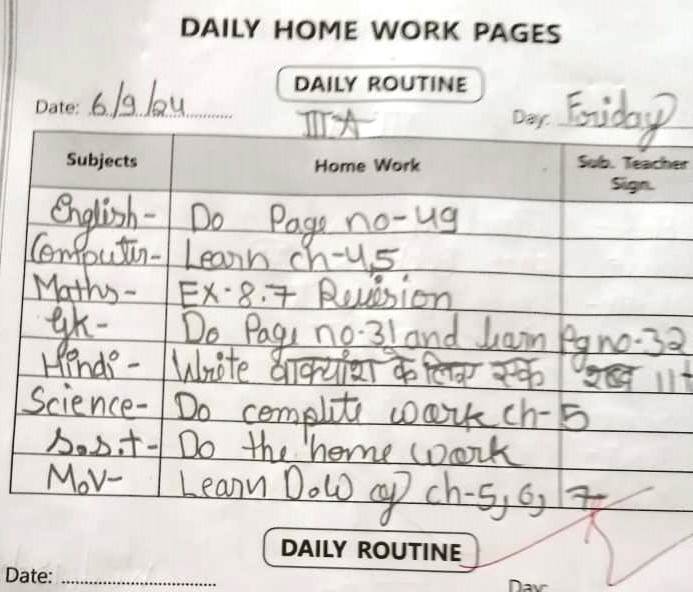 DAILY HOME WORK PAGES
DAILY ROUTINE
Date: 6/9/24 Day: Friday
III A
Subjects Home Work Sub. Teacher Sign.
English- Do Page no-49
Computer- Learn ch-4,5
Maths- EX-8.7 Revision
GK- Do Page no-31 and learn Pg no-32
Hindi- Write वाक्यांश के लिए एक शब्द 11
Science- Do complete work ch-5
S.S.t- Do the home work
M.V- Learn D.W of ch-5, 6, 7
DAILY ROUTINE
Date: Day: